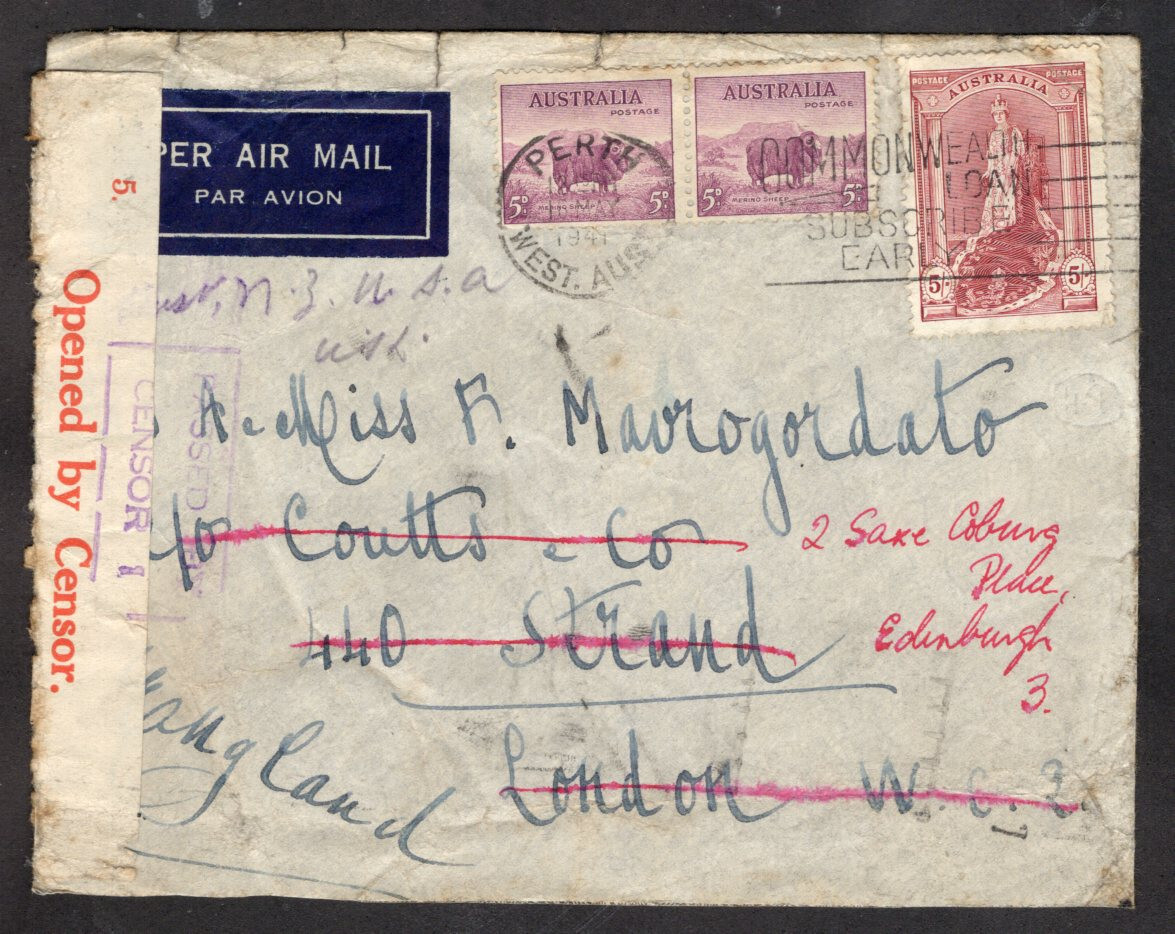 PER AIR MAIL
PAR AVION
AUSTRALIA
POSTAGE
5D
MERINO SHEEP
5D
AUSTRALIA
POSTAGE
5D
MERINO SHEEP
5D
POSTAGE AUSTRALIA POSTAGE
5/-
5/-
PERTH
1941
WEST. AUS
COMMONWEALTH
LOAN
SUBSCRIBE
EARLY
5.
Opened by Censor.
N.Z. U.S.A
PASSED BY
CENSOR
Miss F. Mavrogordato
c/o Coutts & Co
440 Strand
London W.C.2.
England
2 Saxe Coburg
Place,
Edinburgh
3.